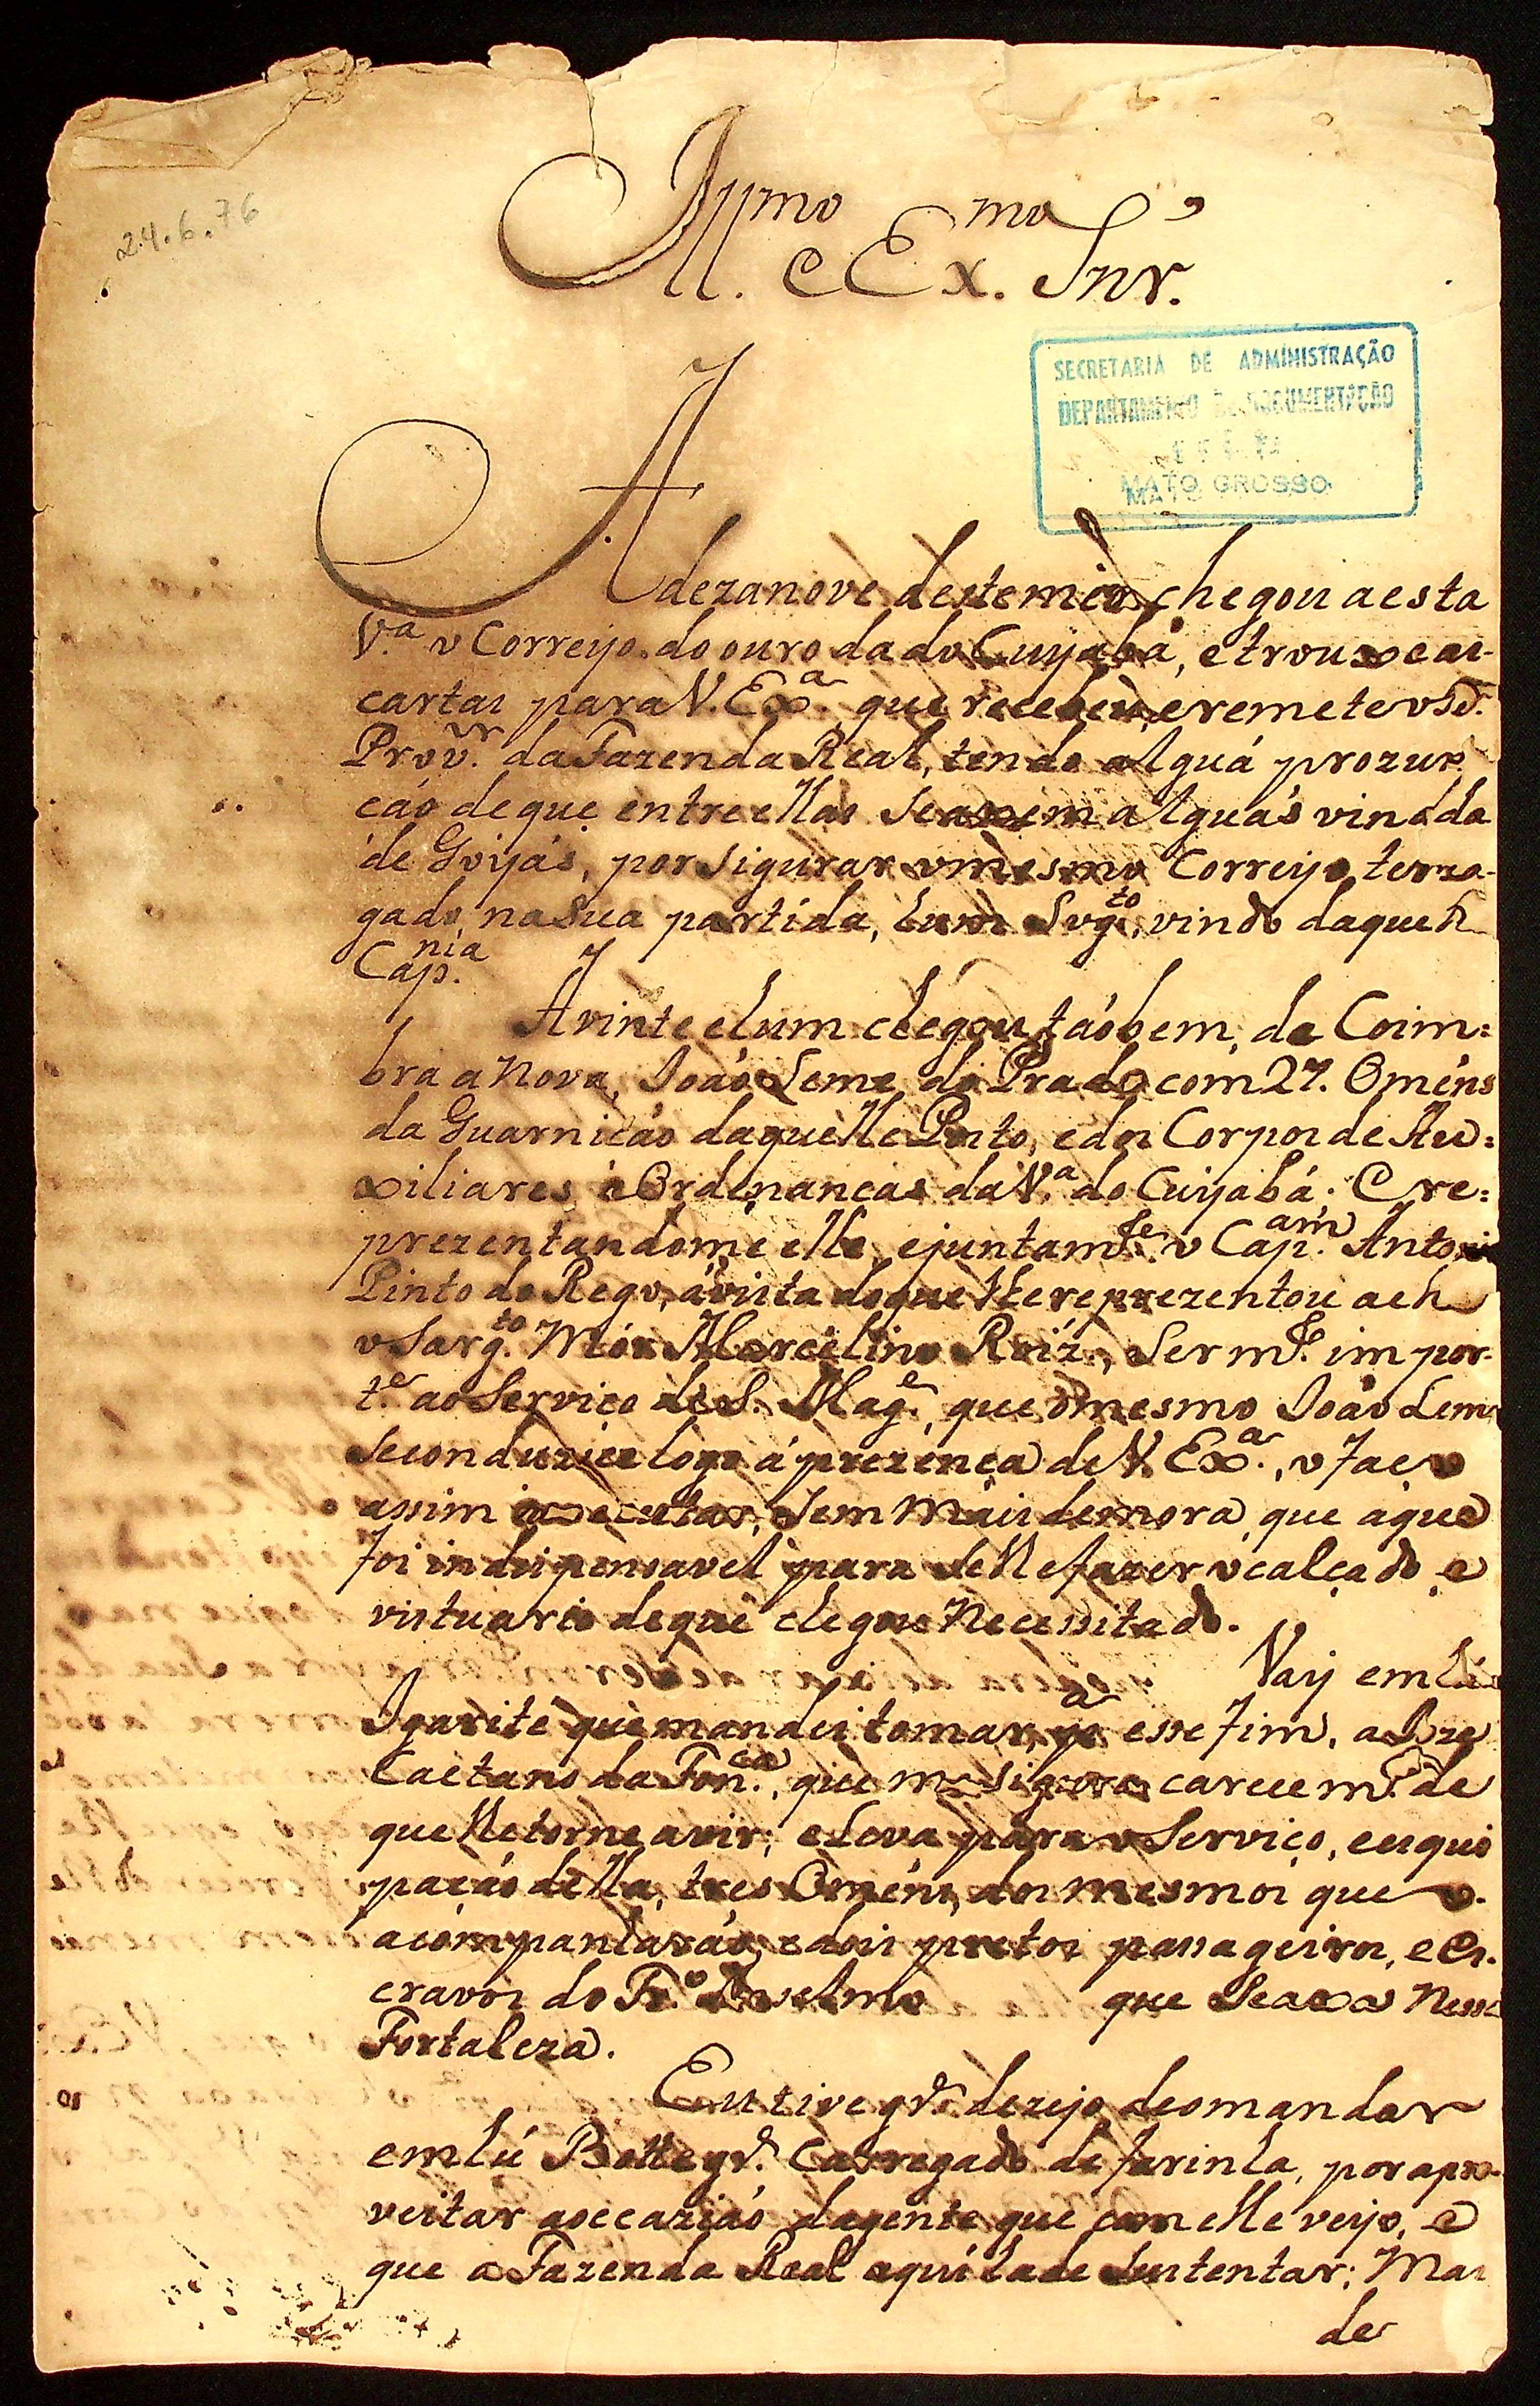 24.6.76
Ill.mo e Ex.mo Snr.
SECRETARIA DE ADMINISTRAÇÃO
DEPARTAMENTO DE DOCUMENTAÇÃO
MATO GROSSO
A dezanove deste mes chegou a esta
V.a o Correyo do ouro da do Cuyabá, e trouxe as
cartas para V. Ex.a que recebeu, e remete o D.r
Prov.or da Fazenda Real, tendo alguá prezun
cáo de que entre ellas se axem alguás vindas
de Goyás, por sigurar o mesmo Correyo ter xe-
gado, na sua partida, hum Sug.to, vindo daquela
Cap.nia
A vinte e hum chegou táobem, de Coim=
bra a Nova, Joáo Leme do Prado com 27. Oméns
da Guarnicáo daquelle Prezto, e dos Corpos de Au=
xiliares e Ordenancas da V.a do Cuyabá. E re=
prezentandome elle, e juntam.te o Cap.am Antonio
Pinto do Rego, á vista do que lhe reprezentou a elle
o Sarg.to Mór Marcelino Roiz, ser m.to impor-
t.e ao Servico de S. Mag.e, que o mesmo Joáo Leme
se conduzice logo á prezença de V. Ex.a, o faco
assim executar, sem mais demora, que aque
foi indispensavel para se lhe fazer o calcado, e
vistuario de que chegou Necessitado.
Vay em hú
Igarite que mandei tomar, p.a esse fim, a Joze
Caetano da Fon.ca, que me sigura carece m.to de
que lhe torne a vir; e leva para o Servico, e equi
pacáo della, tres Oméns, dos mesmos que o
acompanharáo, e dois pretos passageiros, e es-
cravos do Fr.o Anselmo que se axa Nessa
Fortaleza.
Eu tive gr.de dezejo de o mandar
em hú Botte gr.de Carregado de farinha, por apro-
veitar a occaziáo da gente que com elle veyo, e
que a Fazenda Real aqui hade sustentar; Mas
de